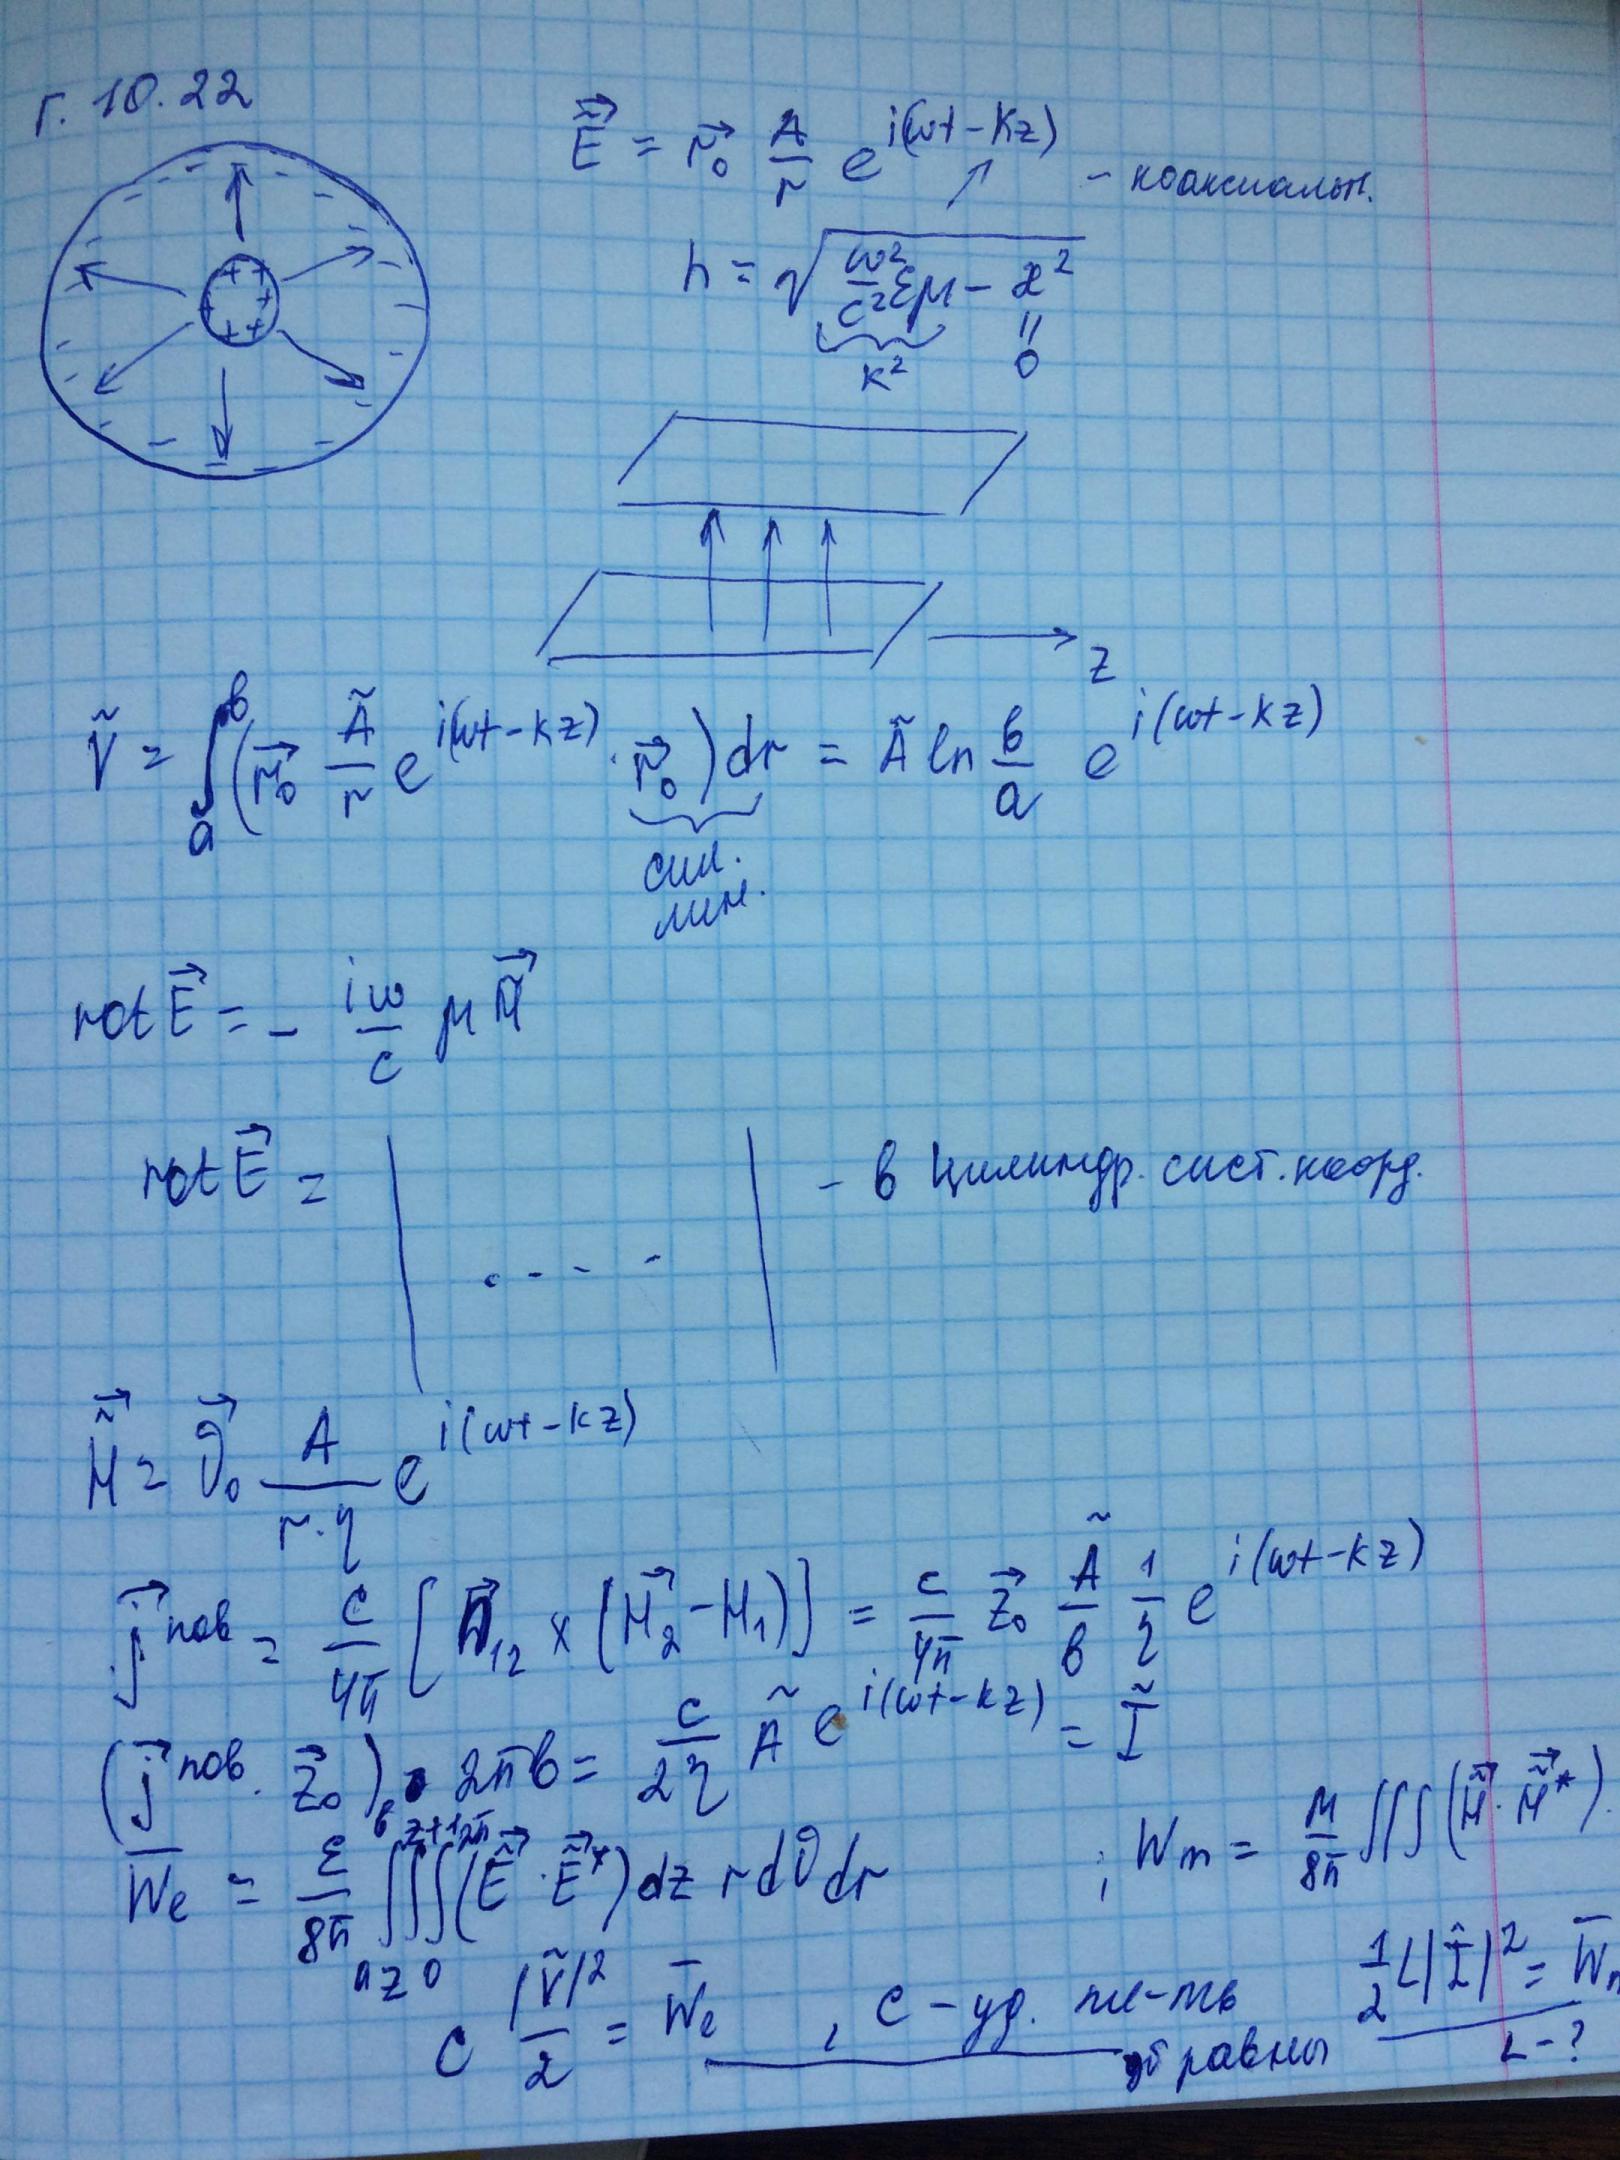 г. 10.22
+ + + + + +
Ẽ⃗ = r⃗₀ A/r e^{i(ωt-kz)} - коаксиальн.
h = √(ω²/c² εμ - æ²)
k² 0
z
Ṽ = ∫ₐᵇ (r⃗₀ Ã/r e^{i(ωt-kz)} · r⃗₀) dr = Ã ln b/a e^{i(ωt-kz)}
сил.
лин.
rot E⃗ = - iω/c μ H⃗
rot E⃗ = | .---- | - в цилиндр. сист. коорд.
H̃⃗ = ϑ⃗₀ A/(r·η) e^{i(ωt-kz)}
j⃗^{пов} = c/4π [n⃗₁₂ × (H⃗₂ - H₁)] = c/4π z⃗₀ Ã/b 1/η e^{i(ωt-kz)}
(j⃗^{пов} · z⃗₀) · 2πb = c/2η Ã e^{i(ωt-kz)} = Ĩ
W̅e = ε/8π ∫ₐᵇ∫_z^{z+1}∫₀^{2π} (Ẽ⃗ · Ẽ⃗*) dz r dϑ dr ; Wm = μ/8π ∫∫∫ (H̃⃗ · H̃⃗*)
C |Ṽ|²/2 = W̅e , C - уд. равны 1/2 L|Ĩ|² = W̅
L-?